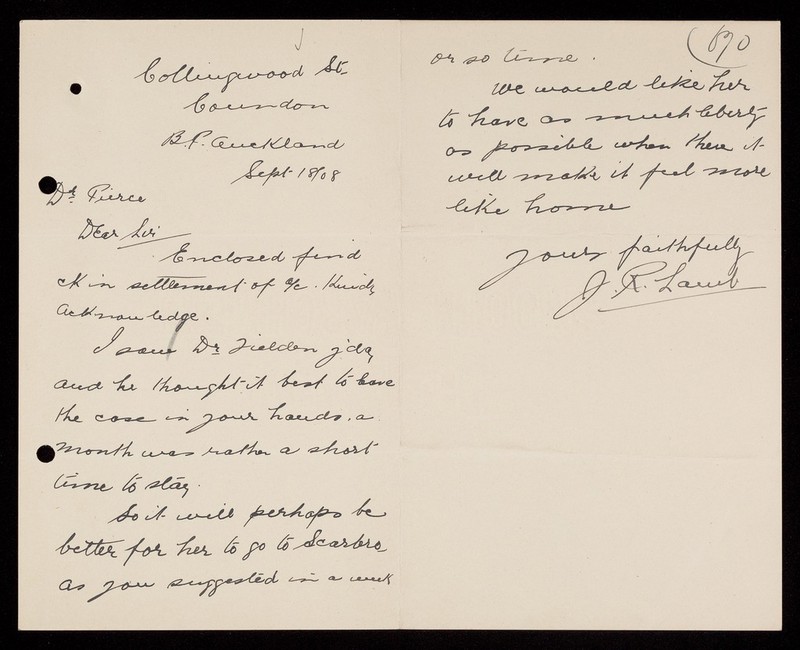 Collingwood St.
Coundon
B.P. Auckland
Sept 18/08
Dr. Pierce
Dear Sir
Enclosed find
ck in settlement of a/c. Kindly
acknowledge.
I saw Dr Fielden yday
and he thought it best to leave
the case in your hands. a
month was rather a short
time to stay.
So it will perhaps be
better for her to go to Scarbro
as you suggested in a week
690
or so time.
We would like her
to have as much liberty
as possible when there it
will make it feel more
like home
yours faithfully
J. R. Lamb